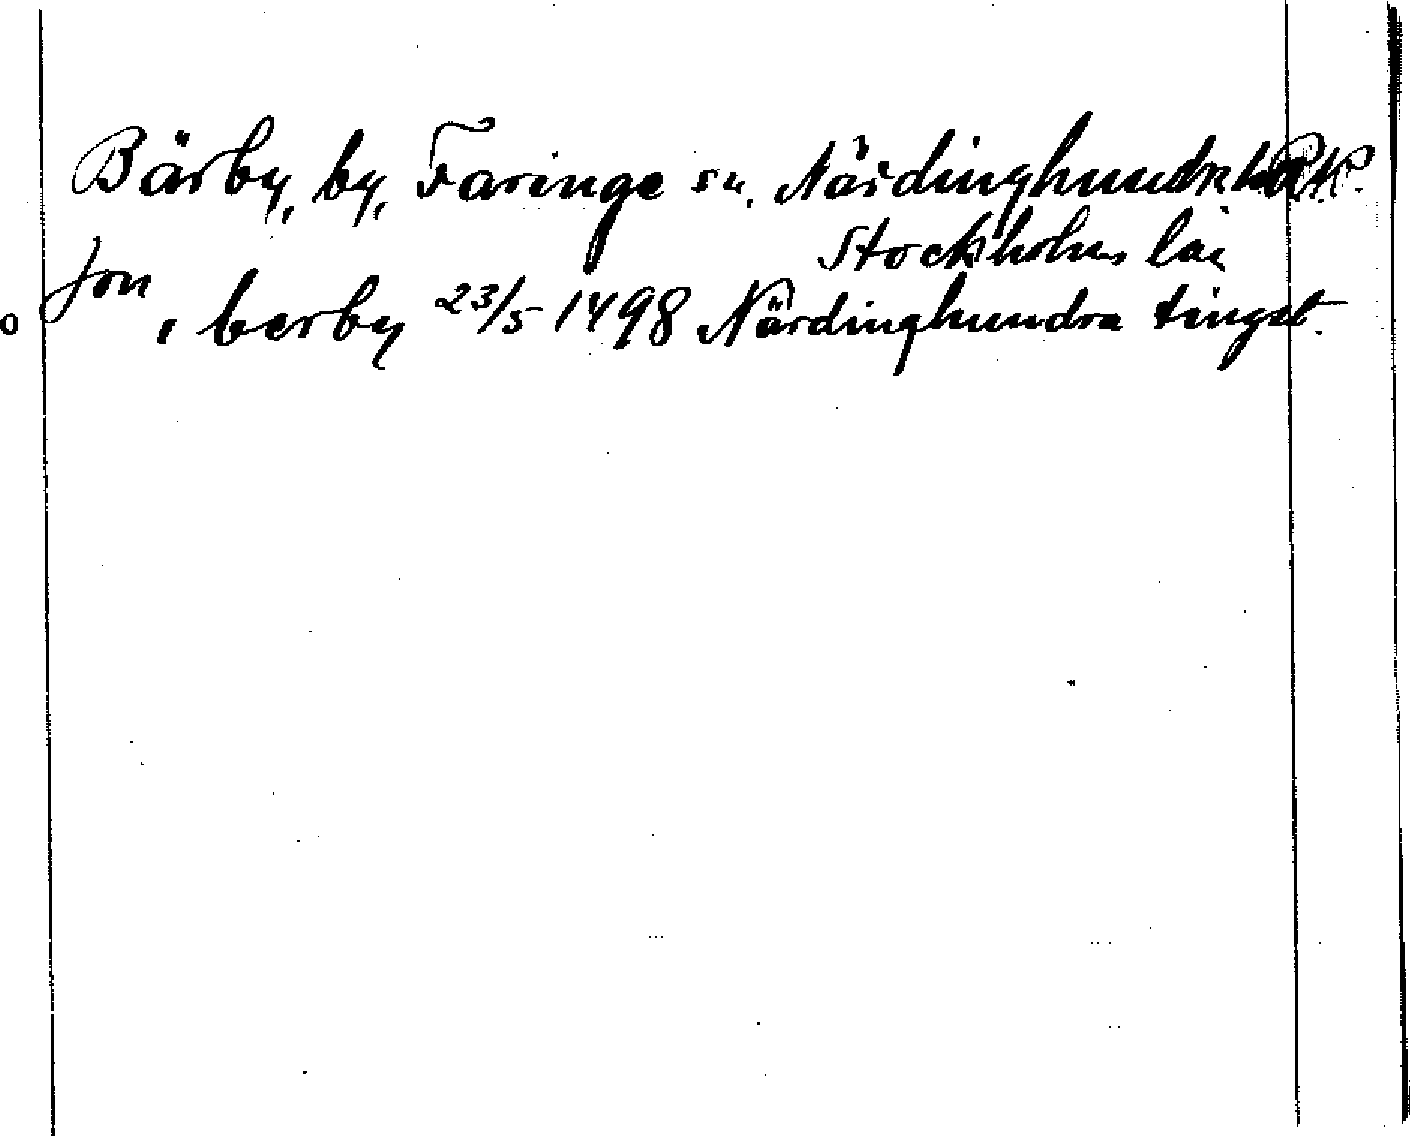 Bärby, by, Faringe sn, Närdinghundra hd RK.
Stockholms län
Jon, berby 23/5 1498 Närdinghundra tingst.